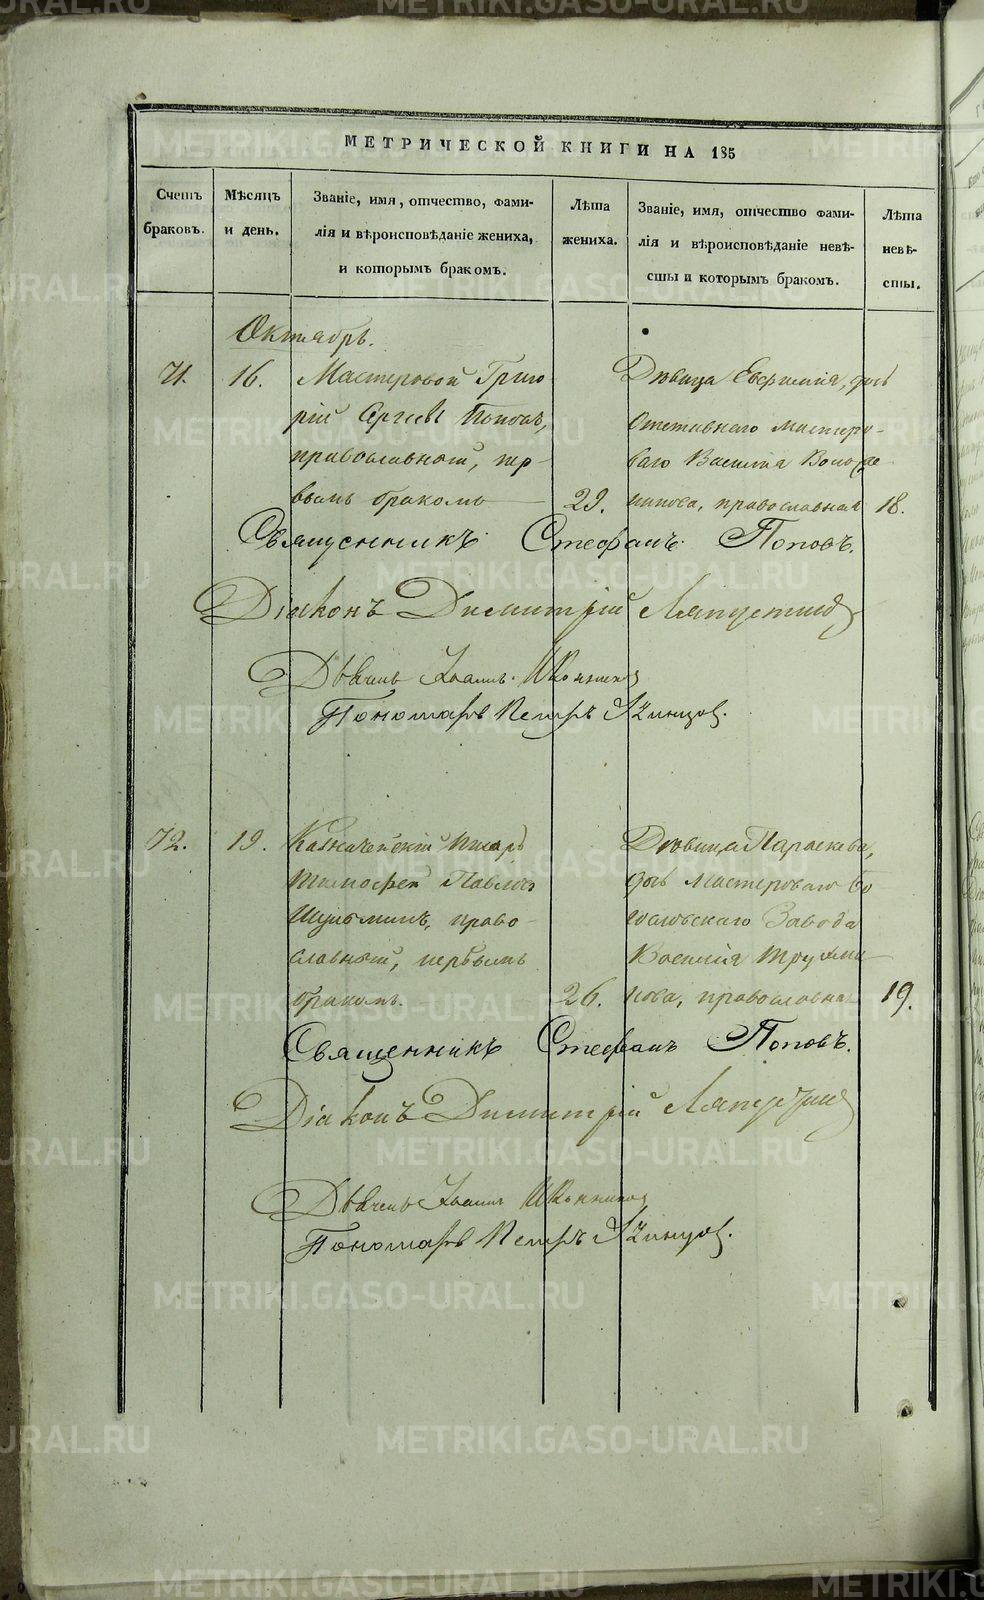 МЕТРИЧЕСКОЙ КНИГИ НА 185
Счетъ браковъ.
Мѣсяцъ и день.
Званіе, имя, отчество, фами-
лія и вѣроисповѣданіе жениха,
и которымъ бракомъ.
Лѣта
жениха.
Званіе, имя, отчество фами-
лія и вѣроисповѣданіе невѣ-
сты и которымъ бракомъ.
Лѣта
невѣ-
сты.
Октябрь.
71.
16.
Мастеровой Григо
рій Сергѣевъ Поповъ,
православный, пер-
вымъ бракомъ
29.
Дѣвица Евфимія, дочь
отставнаго мастеро-
ваго Василія
православная
18.
Священникъ Стефанъ Поповъ.
Діаконъ Димитрій Ляпустинъ
Дьячекъ Іоаннъ Иконниковъ
Пономарь Петръ
72.
19.
Казначейскій писарь
Тимофей Павловъ
Шульминъ, право-
славный, первымъ
бракомъ.
26.
Дѣвица Параскева,
дочь мастероваго Бо
гословскаго Завода
Василія
православная
19.
Священникъ Стефанъ Поповъ.
Діаконъ Димитрій Ляпустинъ
Дьячекъ Іоаннъ Иконниковъ
Пономарь Петръ
METRIKI.GASO-URAL.RU